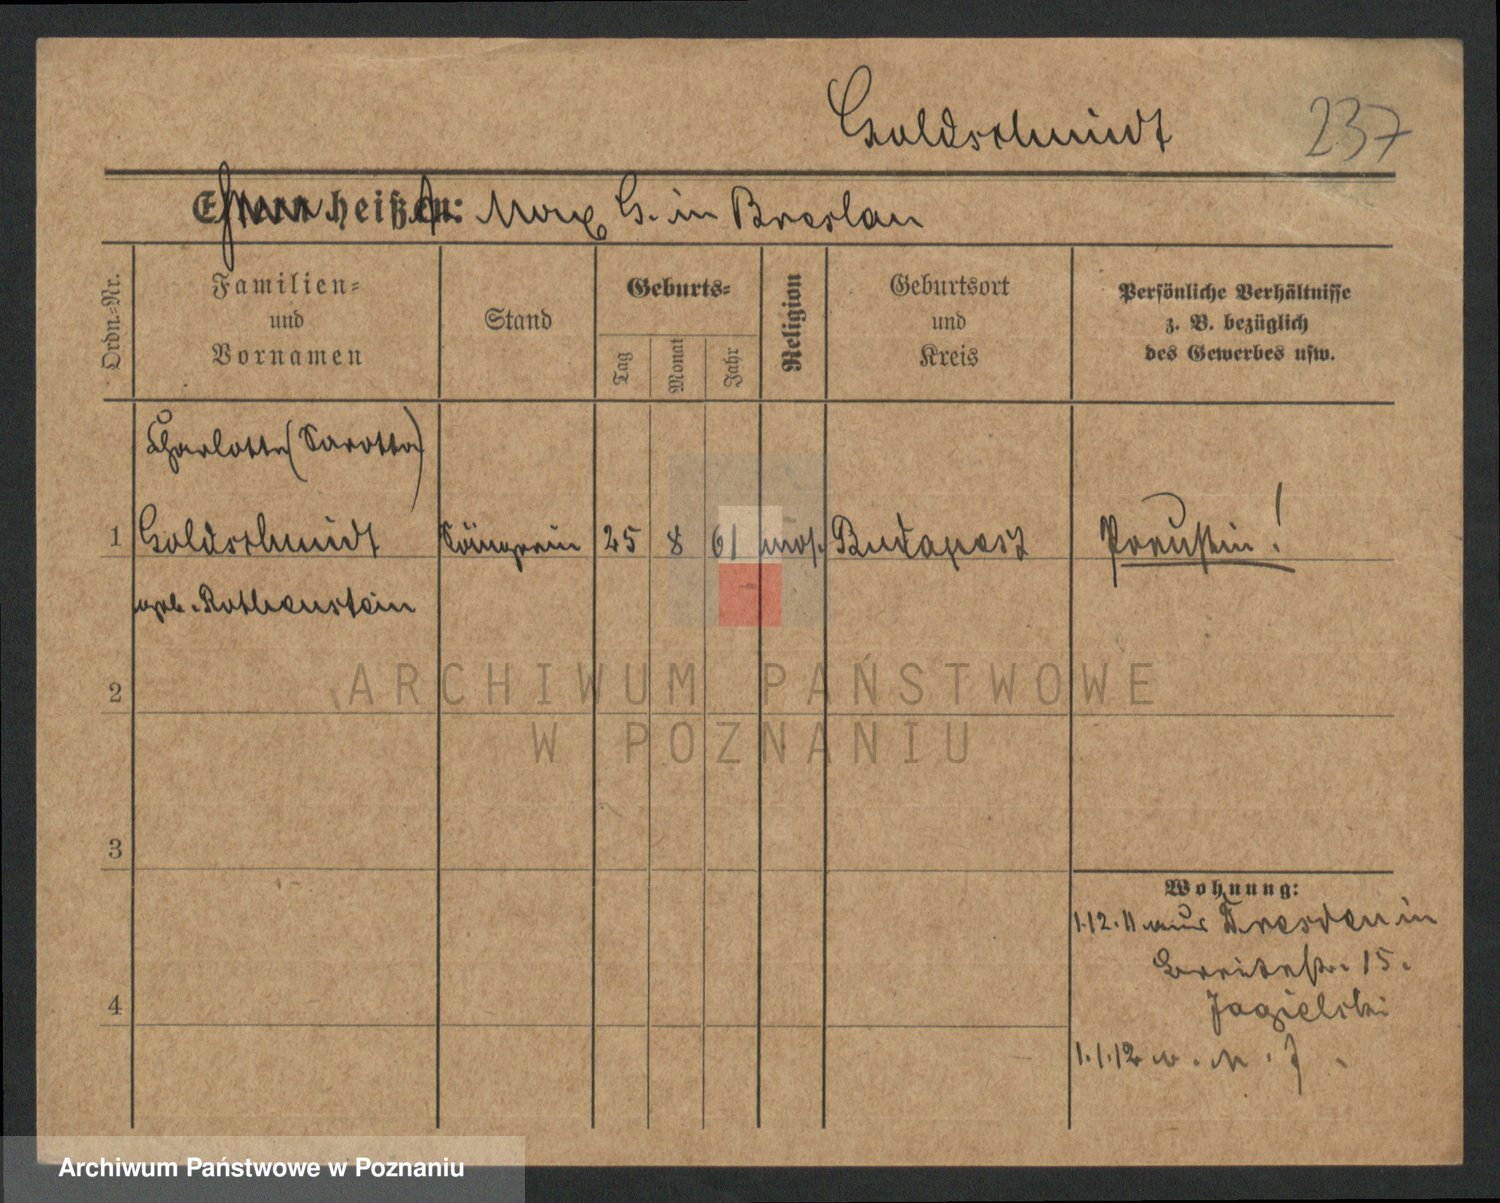 Goldschmidt
237
Eltern heißen: Max G. in Breslau
Ordn.-Nr.
Familien-
und
Vornamen
Stand
Geburts-
Tag
Monat
Jahr
Religion
Geburtsort
und
Kreis
Persönliche Verhältnisse
z. B. bezüglich
des Gewerbes usw.
Charlotte (Sarotta)
1 Goldschmidt Sängerin 25 8 61 mos. Budapest Preußin!
geb. Rothenstein
2
3
4
Wohnung:
1.12.11 aus Dresden in
Breitestr. 15.
Jagielski
1.1.12
ARCHIWUM PAŃSTWOWE
W POZNANIU
Archiwum Państwowe w Poznaniu